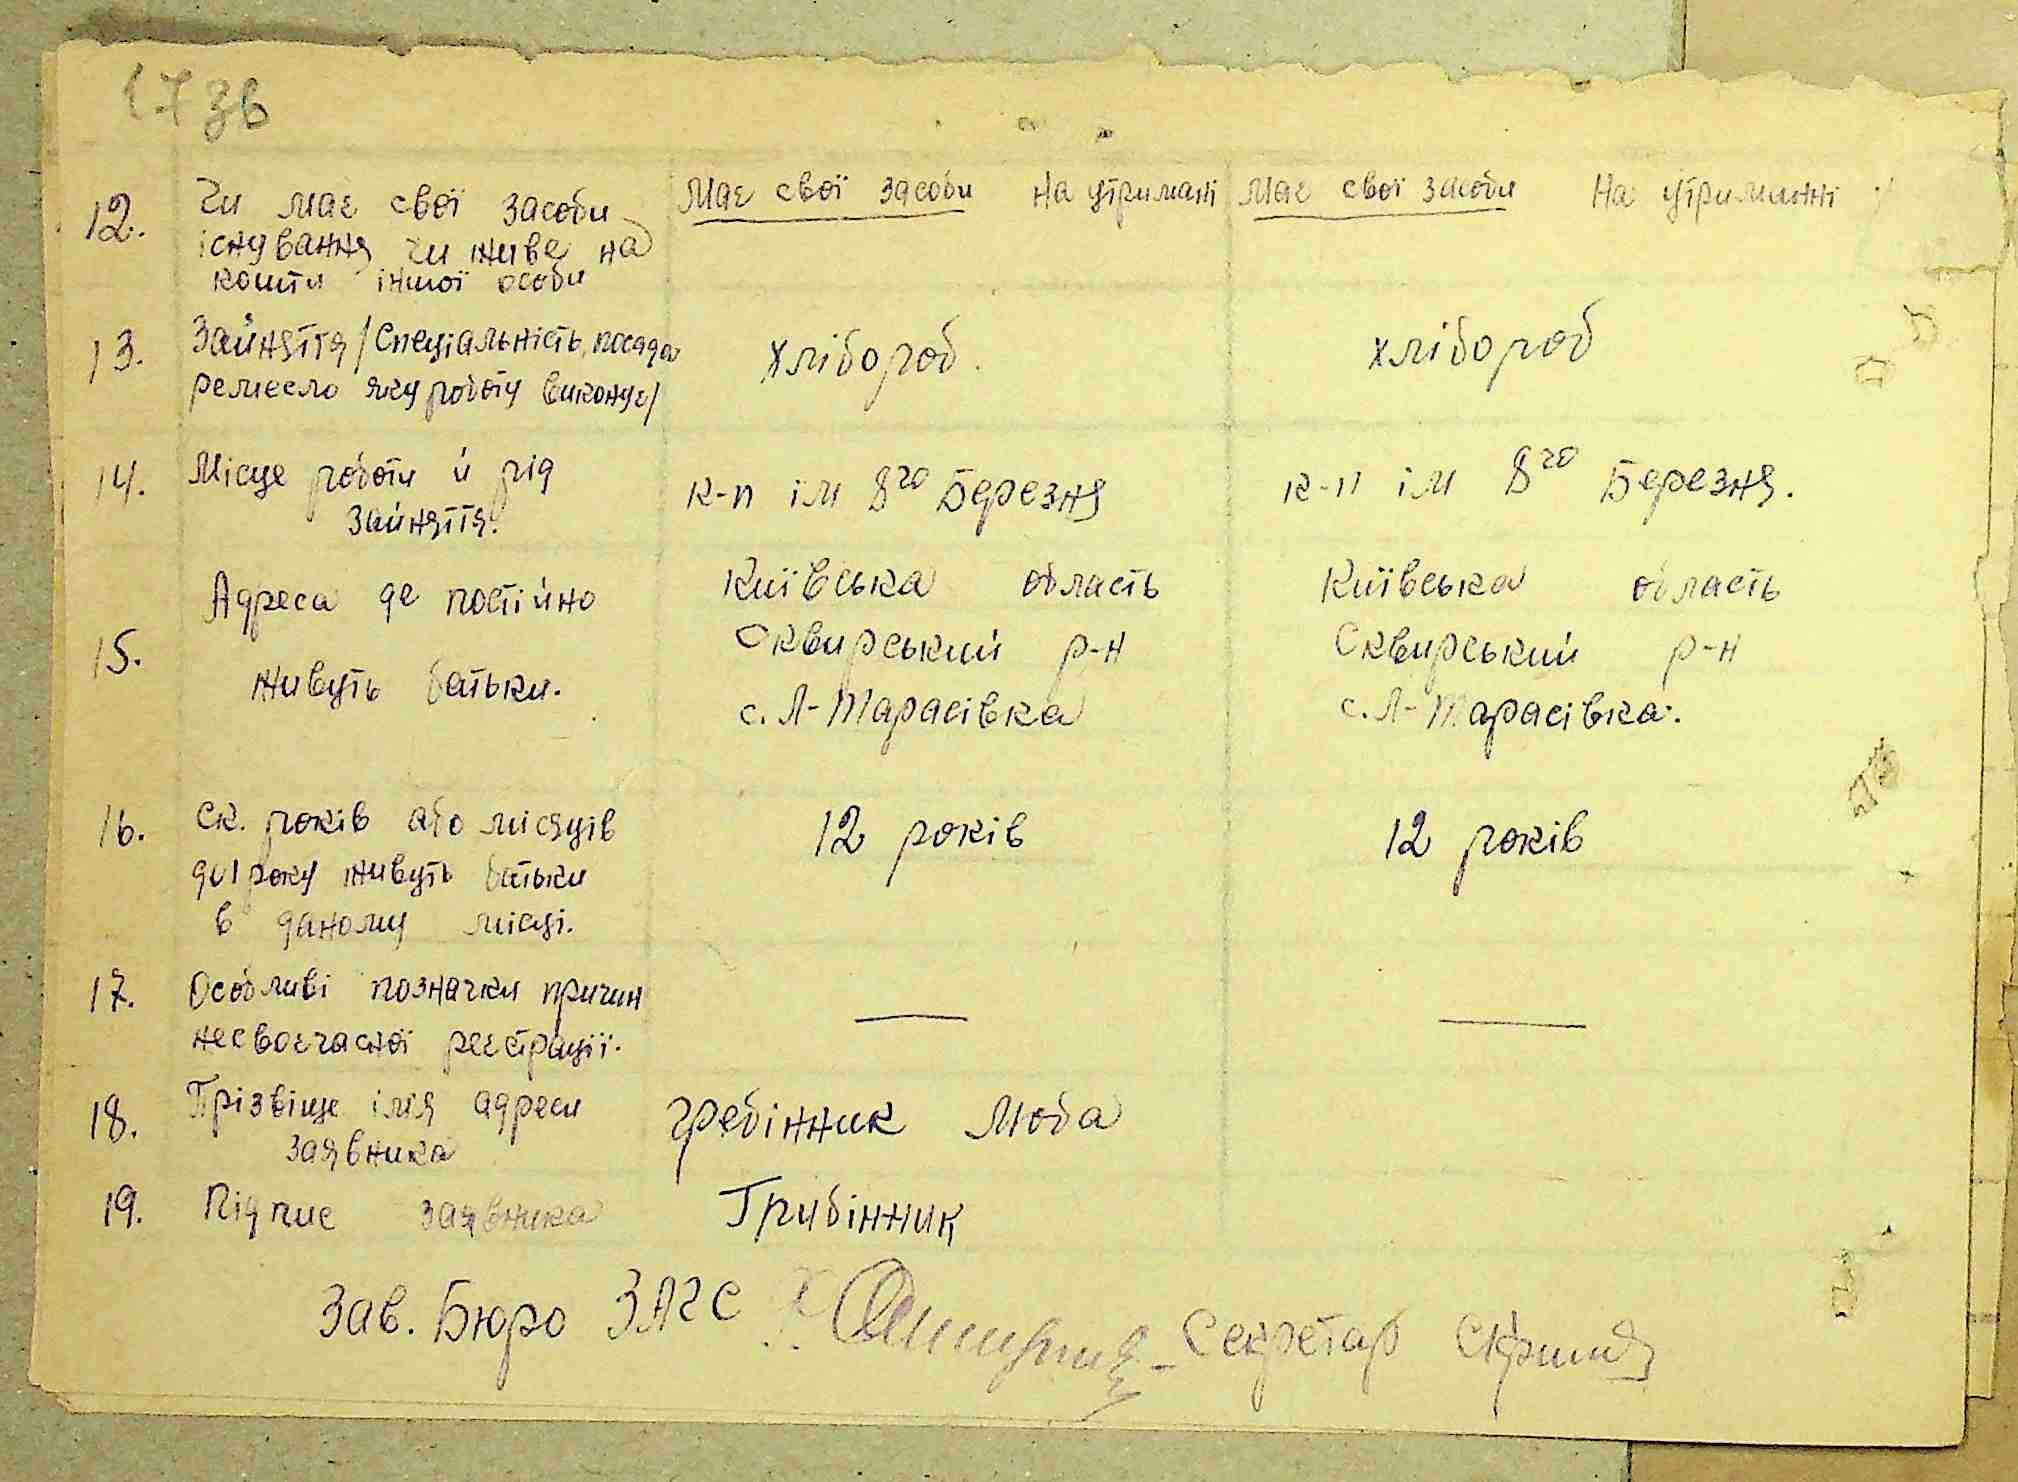 17 зв
12. Чи має свої засоби існування чи живе на кошти іншої особи
Має свої засоби На утримані
Має свої засоби На утриманні
13. Зайняття /Спеціальність, посада
ремесло яку роботу виконує/
хлібороб.
хлібороб
14. Місце роботи й рід
зайняття.
к-п ім 8го Березня
к-п ім 8го Березня.
15. Адреса де постійно
живуть батьки.
Київська область
Сквирський р-н
с. Л-Тарасівка
Київська область
Сквирський р-н
с. Л-Тарасівка.
16. Ск. років або місяців
до 1 року живуть батьки
в даному місці.
12 років
12 років
17. Особливі позначки причин
несвоєчасної реєстрації.
—
—
18. Прізвіще імія адреси
заявника
Гребінник Люба
19. Підпис заявника
Грибінник
Зав. Бюро ЗАГС
Секретар